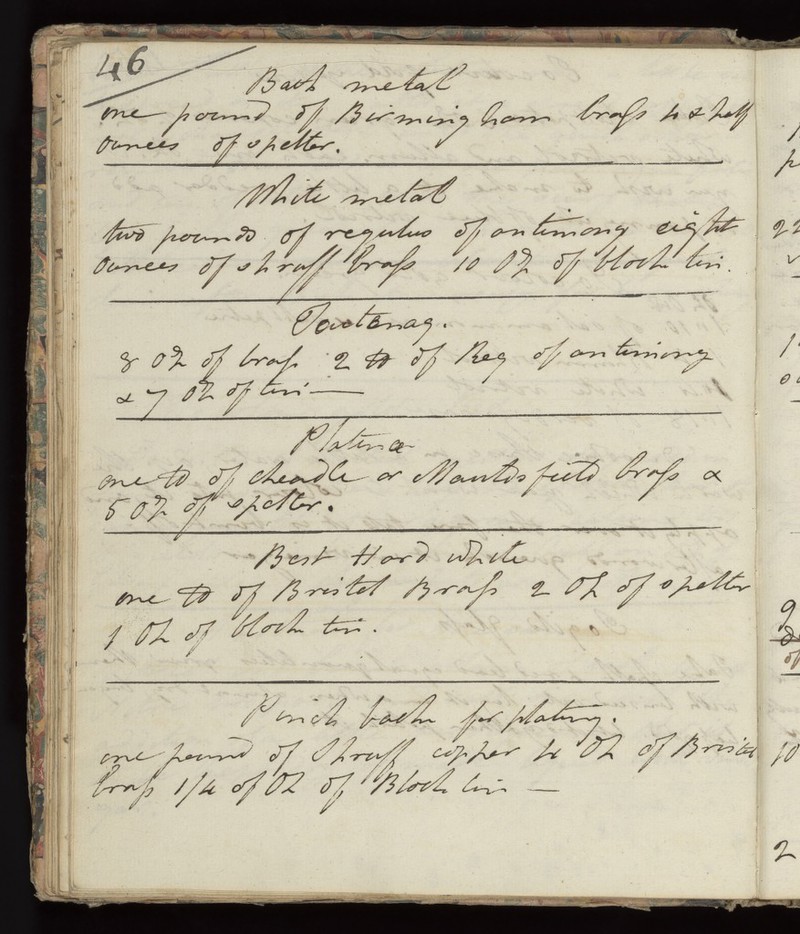 46
Bath metal
one pound of Birmingham brass 4 & half
ounces of spelter.
White metal
two pounds of regulus of antimony eight
ounces of shruff brass 10 Oz of block tin.
Tutenag.
8 Oz of brass 2 lb of Reg of antimony
& 7 Oz of tin —
Platina
one lb of cheadle or brass &
5 Oz of spelter.
Best Hard white
one lb of Bristol Brass 2 Oz of spelter
1 Oz of block tin.
Pinch back for plating.
one pound of Shruff copper 4 Oz of Bristol
brass 1/4 of Oz of Block tin —